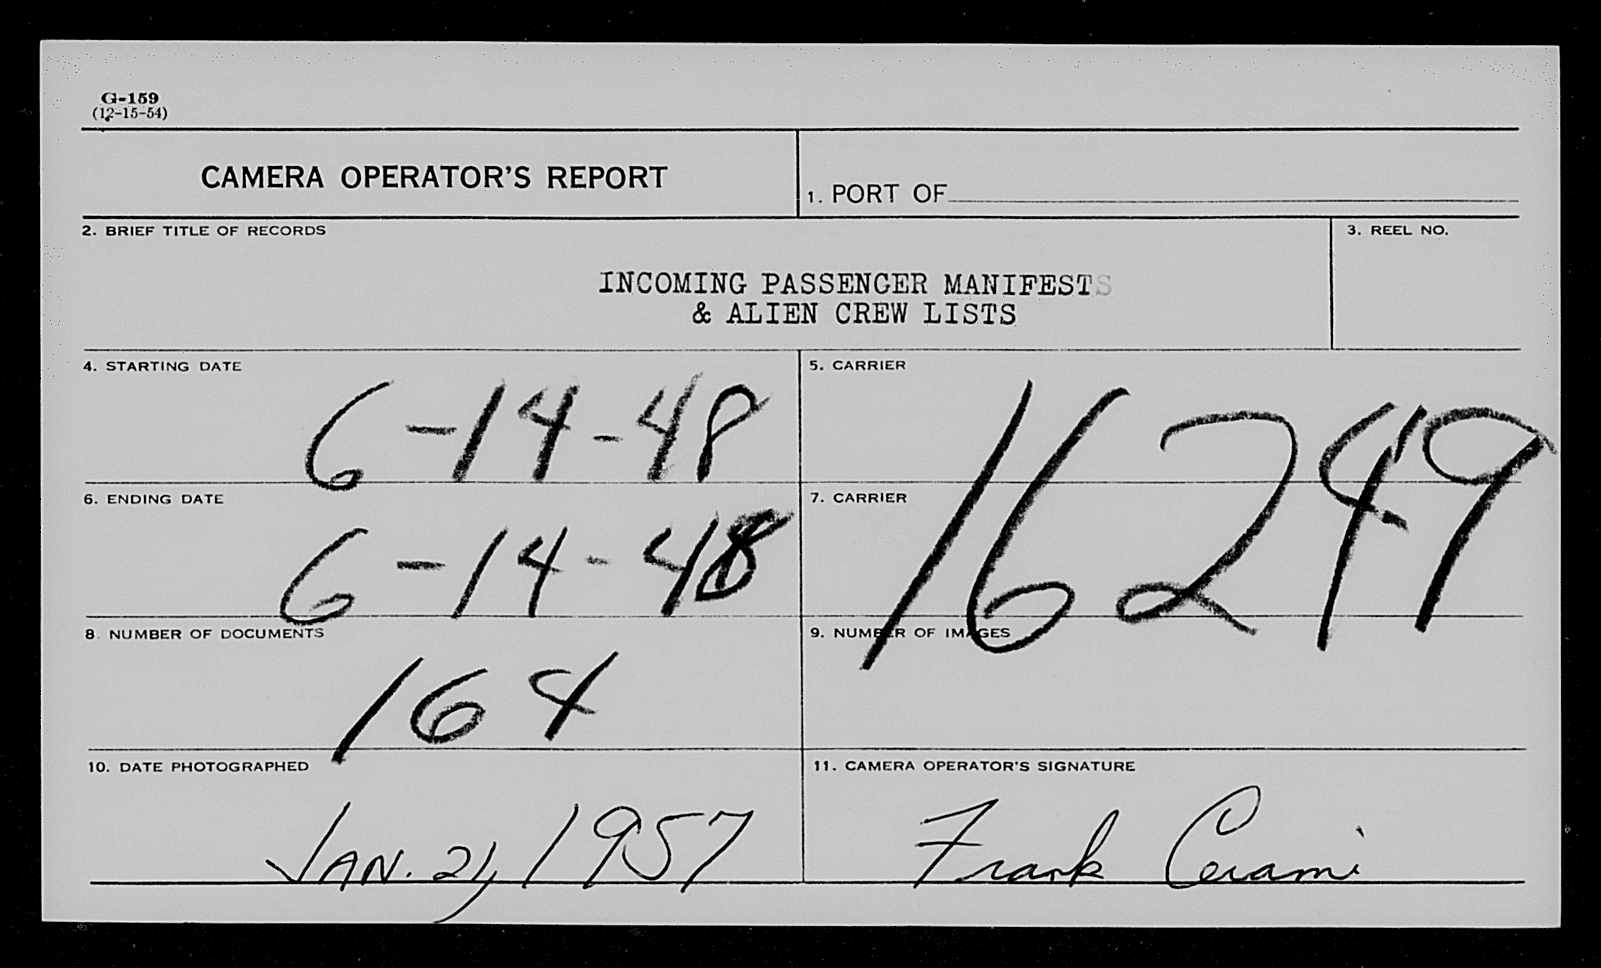 G-159
(12-15-54)
CAMERA OPERATOR'S REPORT
1. PORT OF
2. BRIEF TITLE OF RECORDS
3. REEL NO.
INCOMING PASSENGER MANIFESTS
& ALIEN CREW LISTS
4. STARTING DATE
6-14-48
5. CARRIER
16249
6. ENDING DATE
6-14-48
7. CARRIER
8. NUMBER OF DOCUMENTS
164
9. NUMBER OF IMAGES
10. DATE PHOTOGRAPHED
JAN. 21, 1957
11. CAMERA OPERATOR'S SIGNATURE
Frank Cerami